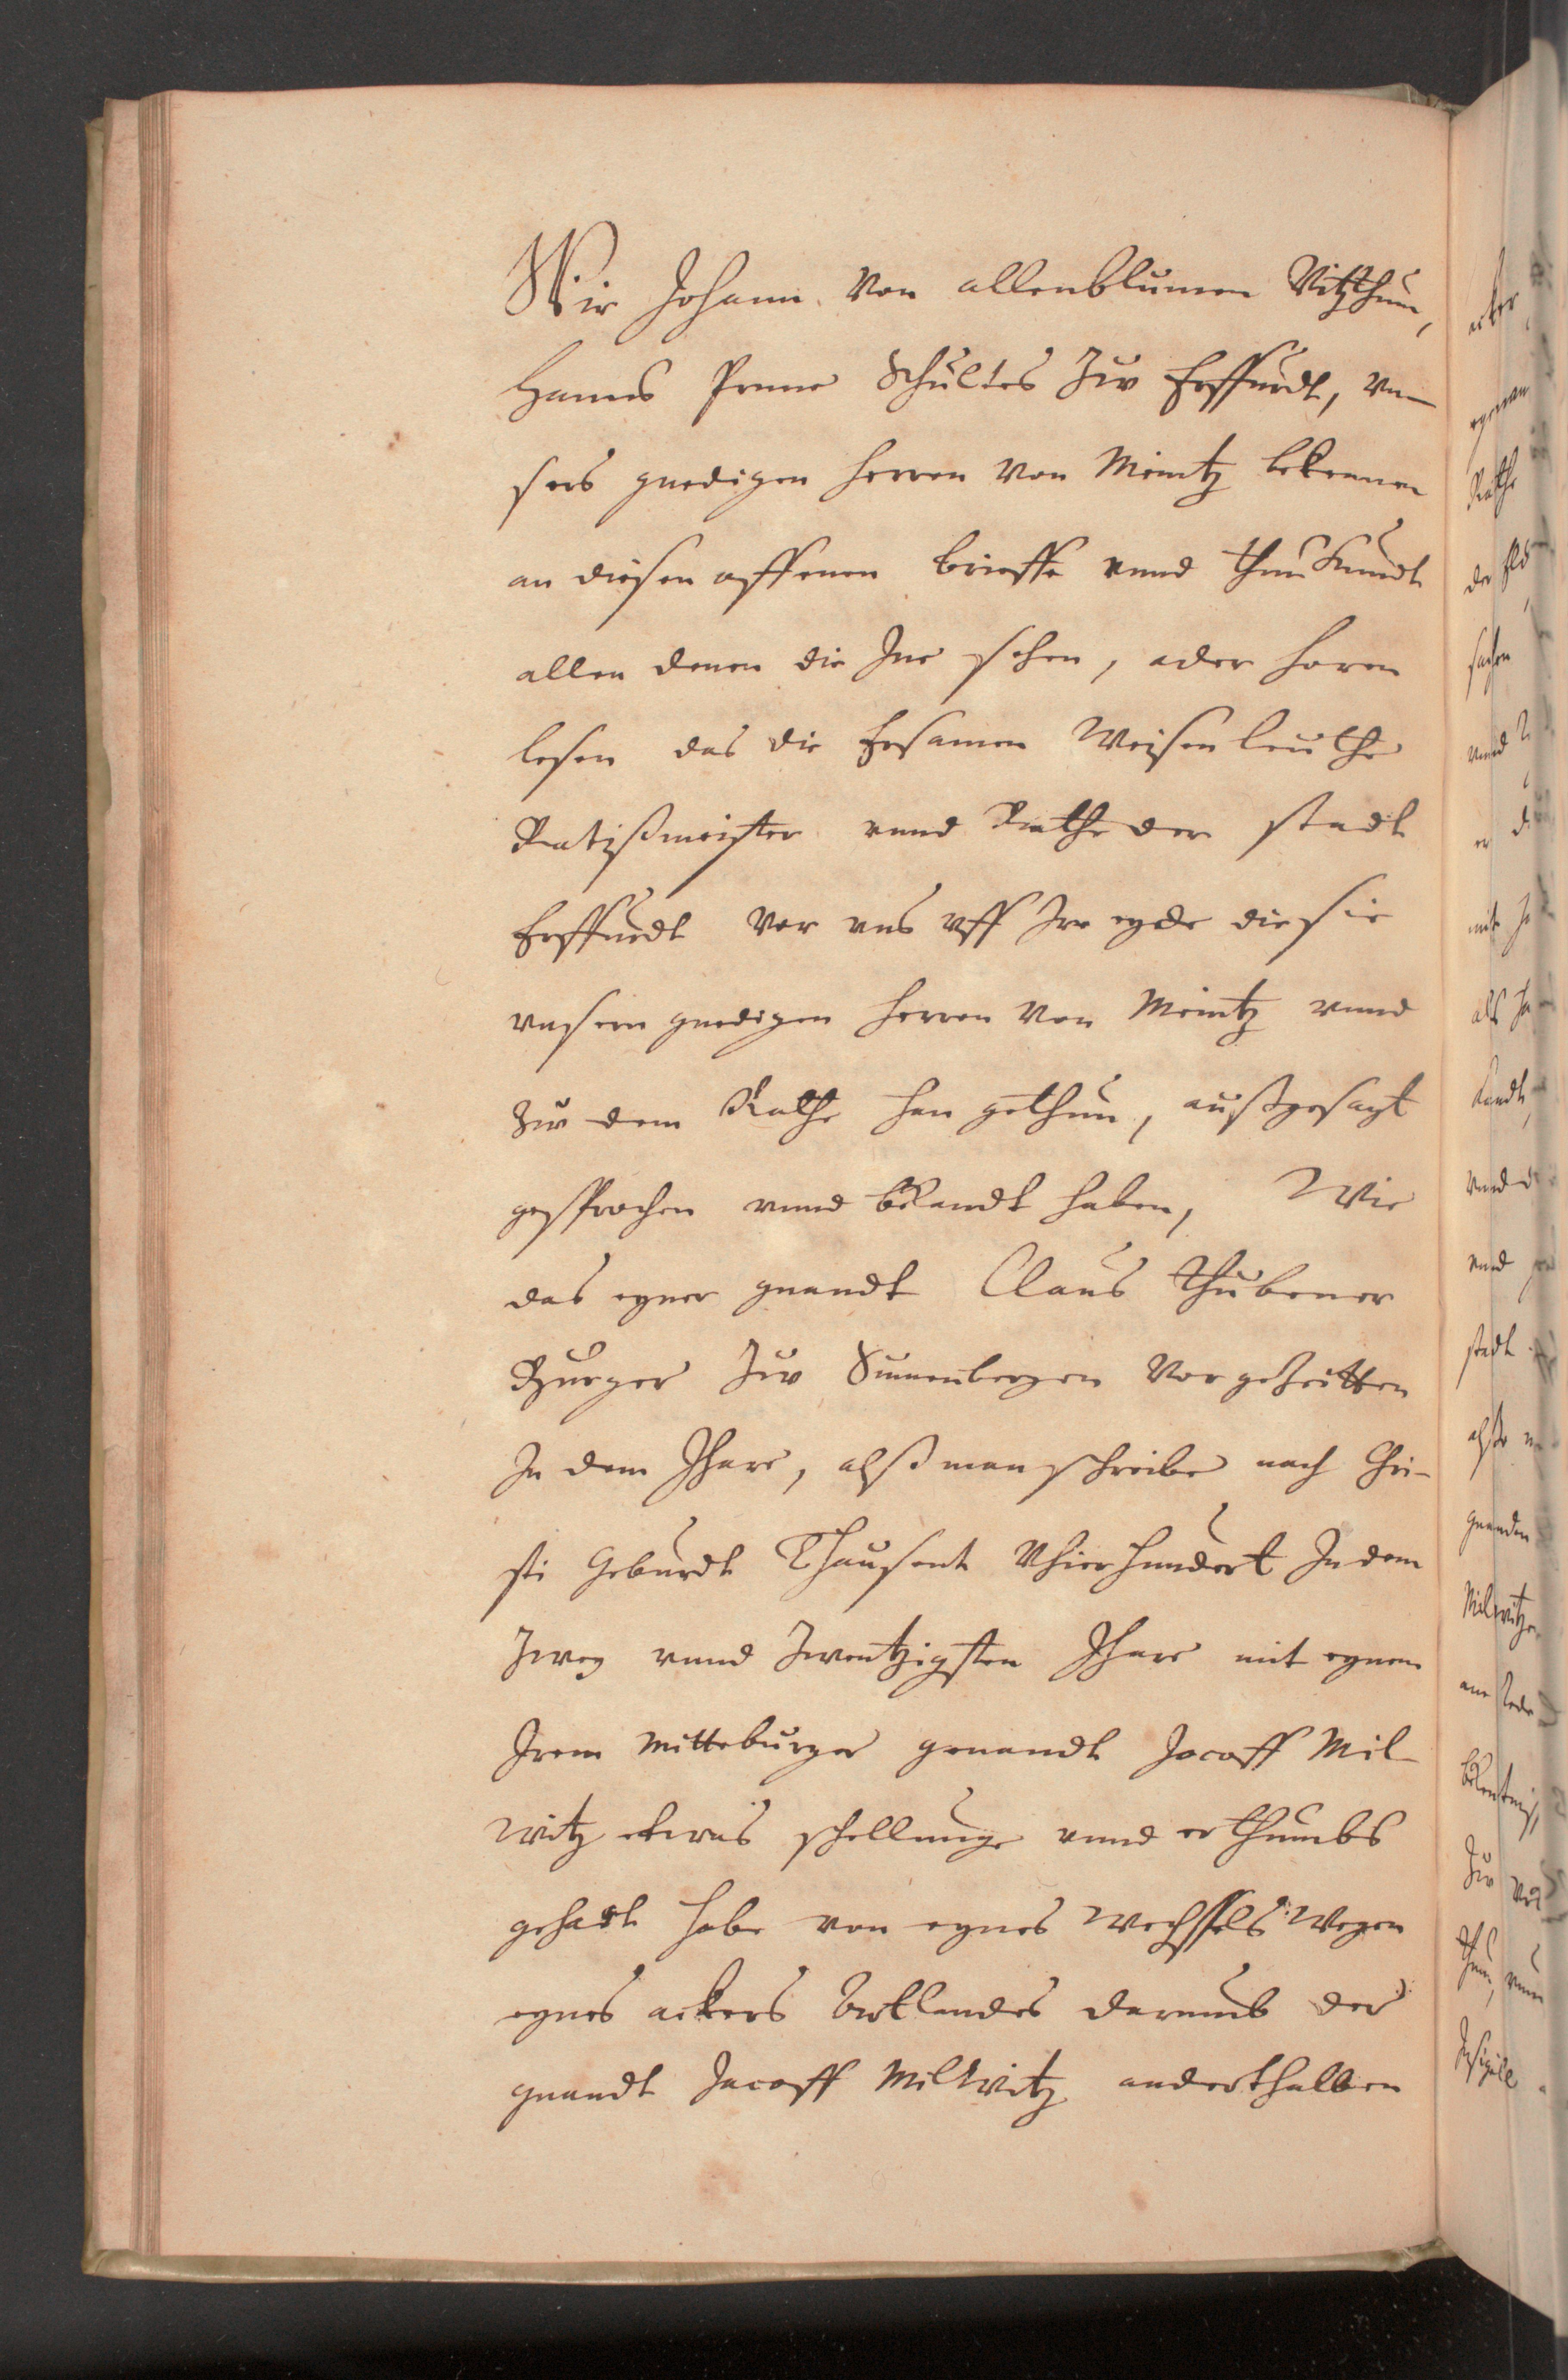 Wir Johann von allenblumen Vitzthum,
Hanns Prume Schultes Zuv Erffurdt, vn-
sers gnedigen Herren von Mentz bekennen
an diesen offenen brieffe vnnd thun Kundt
allen denen die Ine sehen, ader horen
lesen das die Ersamen Weisen leuthe
Ratißmeister vnnd Rathe der stadt
Erffurdt vor vns vff Ire eyde die sie
vnsern gnedigen Herren von Mentz vnnd
Zuv dem Rathe han gethun, außgesagt
gesprochen vnnd bekandt haben, Wie
das eyner gnandt Claus Thubener
Burger Zuv Sunenbergen vorgeheitten
In dem Jhare, alß man schreibe nach Chri-
sti Geburdt Thausent Vhierhundert In dem
Zwey vnnd Zwentzigsten Jhare mit eynem
Irem Mitteburger genandt Jacoff Mil-
witz etwas schellunge vnnd erthumbs
gehadt habe von eynes wechssels wegen
eynes ackers Artlandes darumb der
gnandt Jacoff Millwitz anderthalben
acker
genan
Rathe
der
sachen
vnnd
er
mit
als
Kandt,
vnnd
vnnd
stadt
alße
gnanden
Milwitze
ane
bekentniß
Zuv
thun, vnnd
Insigill